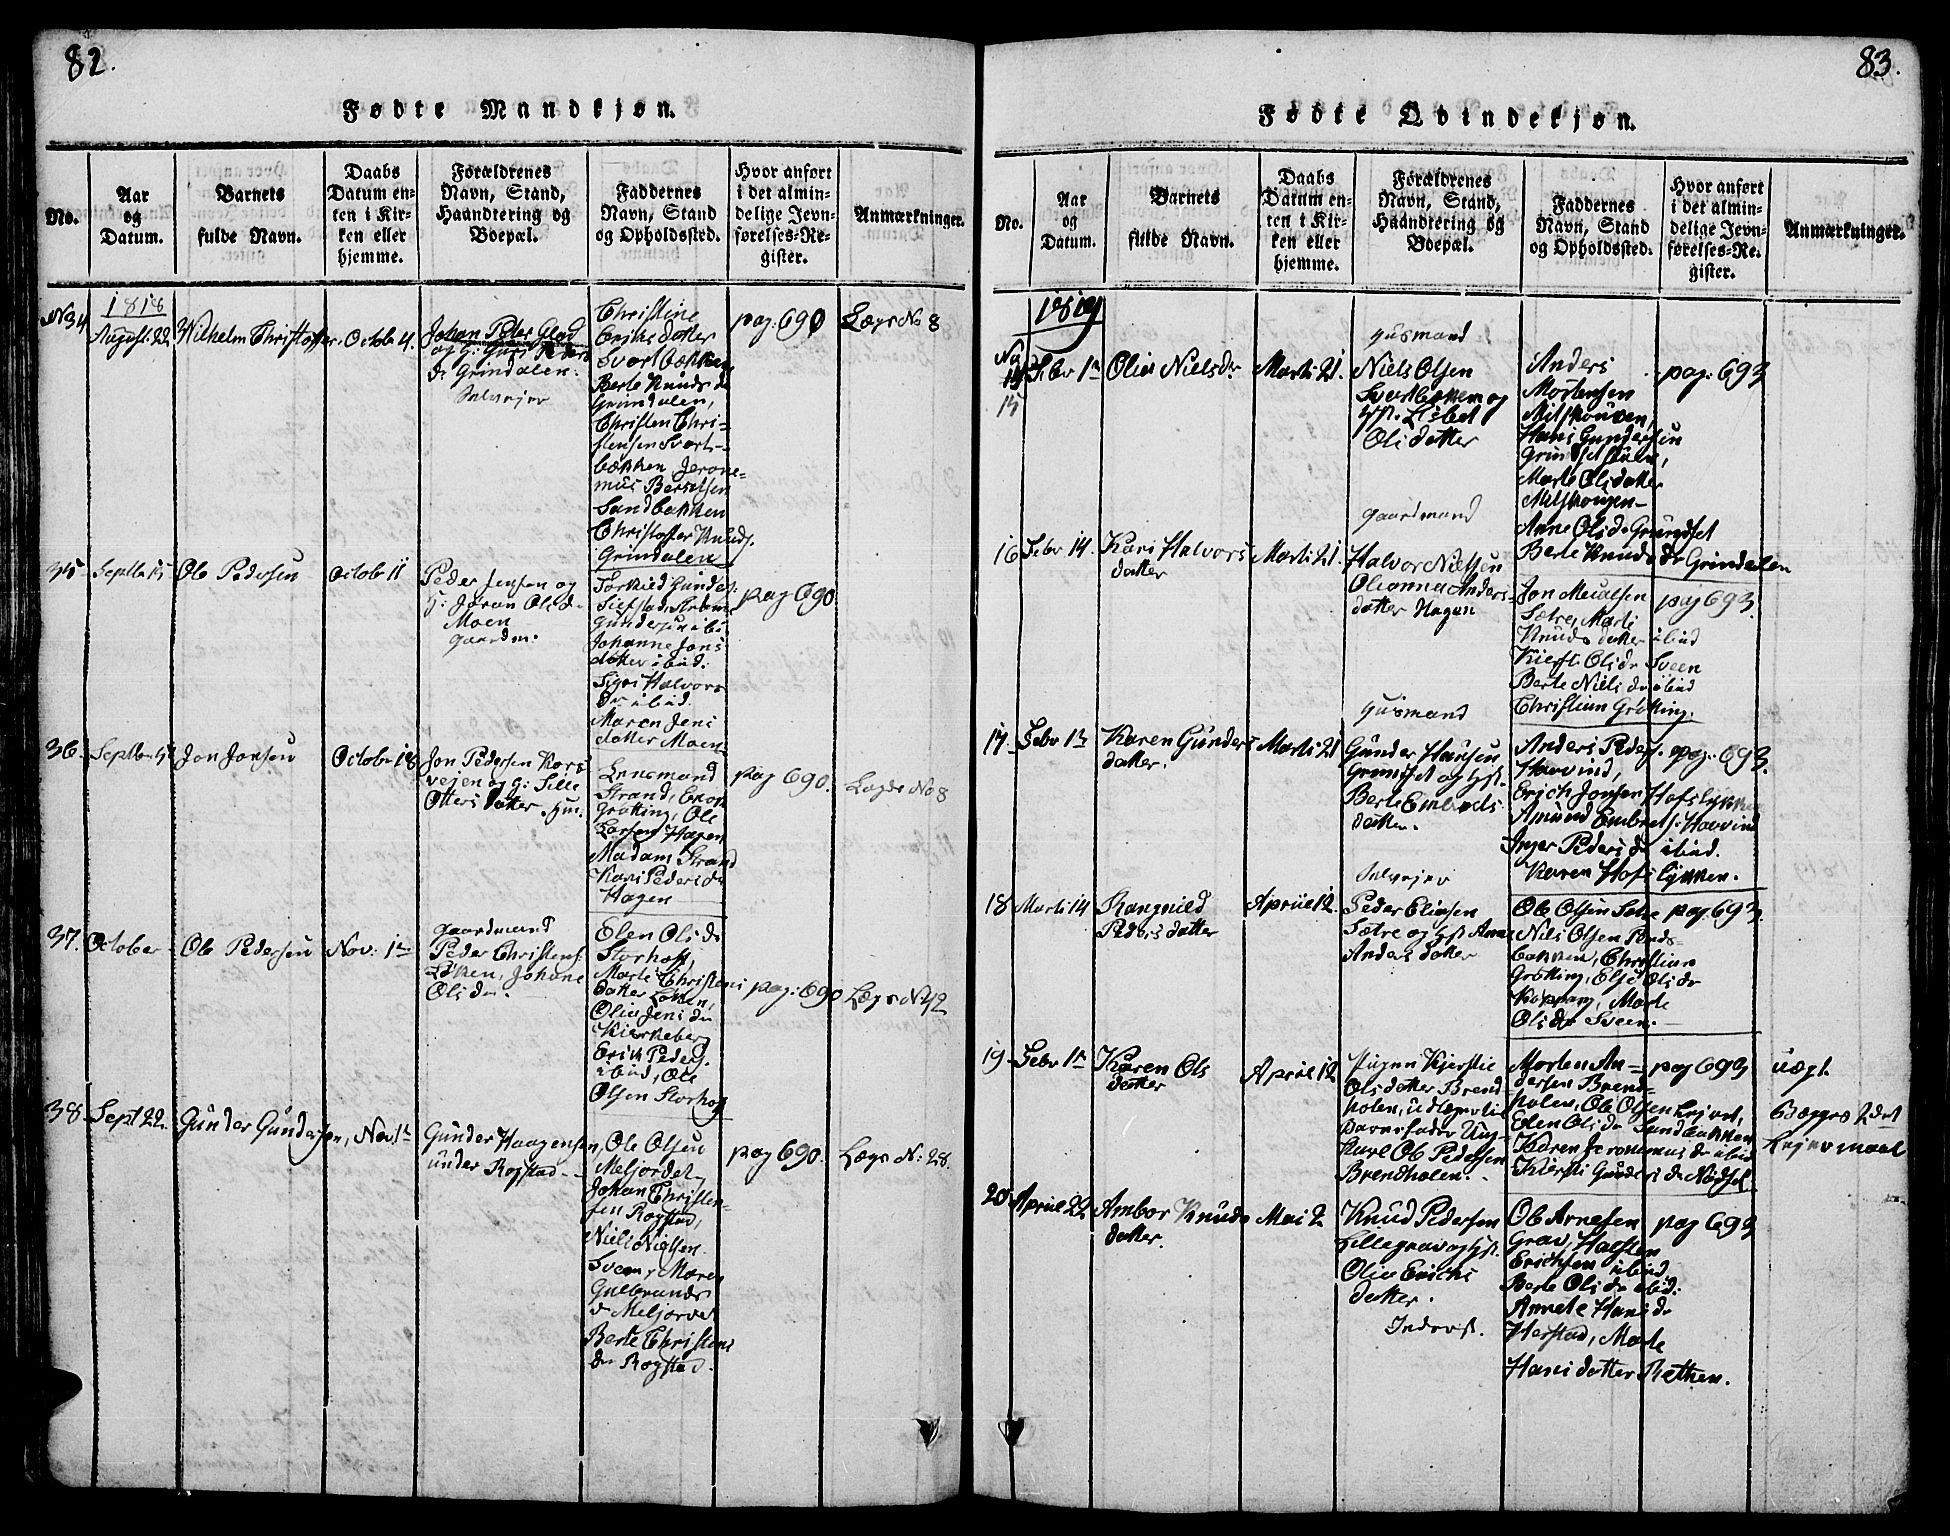 82.
Fødte Mandkjøn.
No.
Aar
og
Datum.
Barnets
fulde Navn.
Daabs
Datum en-
ten i Kir-
ken eller
hjemme.
Forældrenes
Navn, Stand,
Haandtering og
Boepæl.
Faddernes
Navn, Stand
og Opholdssted.
Hvor anført
i det almin-
delige Jevn-
førelses-Re-
gister.
Anmærkninger.
No 34
1818
August: 22.
Wilhelm Christoffer.
Octobr 4.
Johan Peder Glad
og h: Guri Peders
dr Grindalen.
Selvejer
Christine
Erichs datter
Svartbækken
Berte Knuds dr
Grindalen,
Christen Chri-
stensen Svart-
bækken, Jerone-
mus Berntsen
Sandbakken
Christoffer Knuds.
Grindalen
pag. 690
Lægs No 8
35
Septb. 15
Ole Pedersen
Octobr 11
Peder Jensen og
h: Joran Olsd.
Moen
gaardm:
Torkild Gunders.
Sigstad, Strøm
Gundersen ibi
Johanne Jons
datter ibid.
Sigri Halvors
dr ibid.
Maren Jens
datter Moen
pag 690
36.
Jon Jonsen
Octobr 18
Jon Pedersen Kors
vejen og h: Sille
Otters datter, Hus.
Lensmand
Strand, Enok
Grøtting, Ole
Larsen Hagen
Madam Strand
Kari Peders dr
Hagen
pag 690.
Lægds No 8
37.
October
Ole Pedersen
Nov: 1ste
gaardmand
Peder Christens.
Løken, Johane
Ols dr.
Elen Ols dr
Storhog,
Marte Christens
datter Løken,
Olia Jens dr
Kierkeberg
Erik Peders.
ibid, Ole
Olsen Storhog
pag. 690
Lægs No 42
38
Sept 22.
Gunder Gundersen,
Nov. 1ste
Gunder Haagensen
under Rogstad -
Ole Olsen
Meljordet,
Johan Christen-
sen Rogstad,
Niels Nielsen
Sveen, Maren
Gulbrands
dr Meljordet
Berte Christens
dr Rogstad.
pag 690.
Lægs N: 28.
83.
Fødte Qvindekjøn.
No.
Aar
og
Datum.
Barnets
fulde Navn.
Daabs
Datum en-
ten i Kir-
ken eller
hjemme.
Forældrenes
Navn, Stand,
Haandtering og
Boepæl.
Faddernes
Navn, Stand
og Opholdssted.
Hvor anført
i det almin-
delige Jevn-
førelses-Re-
gister.
Anmærkninger.
1819
No
15
Febr 1ste
Olia Nielsdr
Marti 21.
Husmand
Niels Olsen
Svartbekken og
hst. Lisbet
Ols datter
Anders
Mortensen
Milskouven,
Hans Gundersen
Grindsetskouen,
Marte Ols datter
Milskougen
Anne Ols dr Grundset
Berte Knuds dr Grindalen
pag: 693
16
Febr 14.
Kari Halvors
datter
Marti 21.
gaardmand
Halvor Nielsen
Oleanna Anders
datter Hagen
Jon Mevalsen
Sætre, Marti
Knuds datter ibid
Kierst. Ols dr Sveen
Berte Niels dr ibid
Christian Grøtting.
pag 693.
17
Febr 1ste
Karen Gunders
datter.
Marti 21
Husmand
Gunder Hansen
Grundset og hst.
Berte Embrets
datter.
Anders Peders.
Hovind,
Erich Jonsen Hofslykken
Amund Embrets. Hovind
Inger Peders dr ibid.
Karen Hofslykken.
pag: 693.
18
Marti 14
Rangnild
Peders datter
Apriil 12.
Selvejer
Peder Eliasen
Sætre og hst Anne
Anders datter
Ole Olsen Sætre
Nils Olsen Rønds-
bakken, Christian
Grøtting, Else Ols dr
Kopang, Marte
Ols dr Sveen.
pag. 693.
19
Febr 1ste
Karen Ols
datter
Apriil 12
Pigen Kjerstie
Ols datter Brend-
holen, udlagt til
Barnefader Ung-
karl Ole Pedersen
Brendholen.
Morten An-
dersen Brend-
holen, Ole Olsen Lejret,
Elen Ols dr Sandbakken
Karen Jeronimus dr ibid
Kiersti Gunders dr Nødset
pag 693
uægt
Begges 2det
Lejermaal
20
Apriil 22
Ambor Knuds
datter.
Mai 2
Knud Pedersen
Lillegrav og hst.
Olia Erichs
datter.
Inderst.
Ole Arnesen
Grav, Halsten
Erichsen ibid
Berte Ols dr ibid:
Annete Hans dr
Herstad, Marte
Hans datter Retken.
pag 693